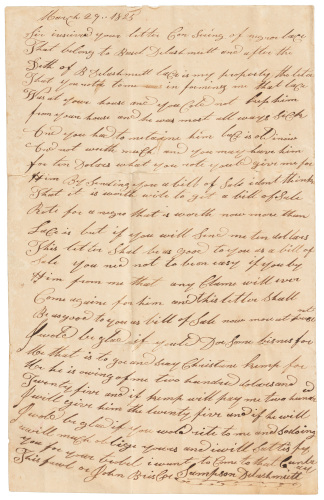 March 29.. 1825
Sir I received your letter Concirning of negro lace
That belong to Basel Delashmutt and after the
Deth of B Delashmutt lace is my property the letter
That you rote to me informing me that lace
Was at youre house and you Cold not keep him
from youre house and he was most all ways Sick
And you had to metasine him lace is old now
And not worth much and you may have him
for ten Dolars what you rote you wold give me for
Him by Sending you a bill of Sale I dont think
That it is worth write to get a bill of Sale
Rote for a negro that is worth now more than
Lace is but if you will Send me ten dollars
This letter Shal be as good to you as a bill of
Sale you need not to be on easy if you by
Him from me that any Clame will ever
Come againe for him and this letter Shall
Be as good to you as bill of Sale now more at
I wold be glad if you wold Doe Some bisnes for
Me that is to goe and Seay Christian kemp for
Me he is owing of me two handred dolars and
Twenty five and if kemp will pay me two handred
I will give him the twenty five and if he will
I wold be glad if you wold rite to me and
will much oblige youre and I will Satisfy
you for youre trobel I want to Come to that
This furst of John Briscoe Sampson Delashmutt